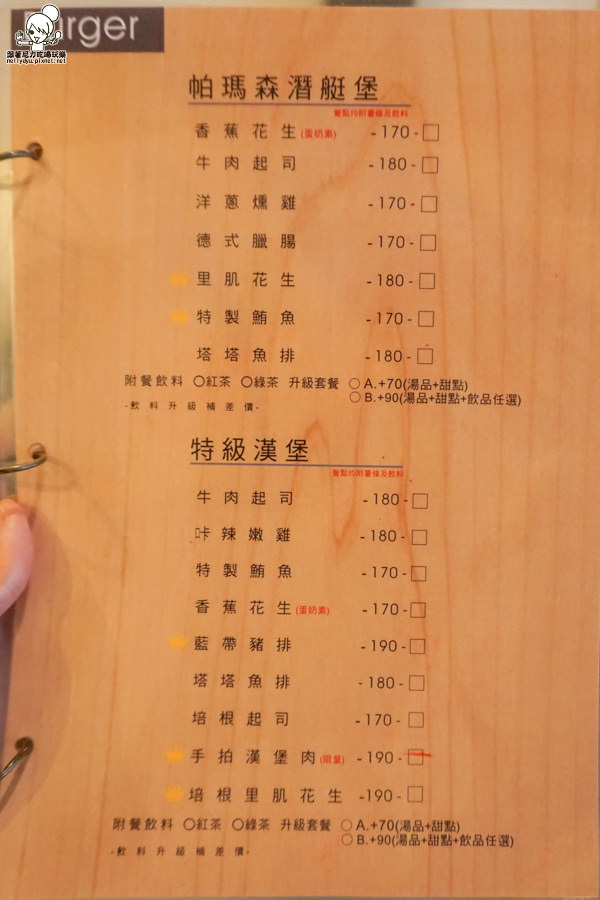 Burger
跟著尼力吃喝玩樂
nellydyu.pixnet.net
帕瑪森潛艇堡
餐點均附薯條及飲料
香蕉花生(蛋奶素) -170-□
牛肉起司 -180-□
洋蔥燻雞 -170-□
德式臘腸 -170-□
里肌花生 -180-□
特製鮪魚 -170-□
塔塔魚排 -180-□
附餐飲料 ○紅茶 ○綠茶 升級套餐 ○ A.+70(湯品+甜點)
-飲料升級補差價- ○ B.+90(湯品+甜點+飲品任選)
特級漢堡
餐點均附薯條及飲料
牛肉起司 -180-□
咔辣嫩雞 -180-□
特製鮪魚 -170-□
香蕉花生(蛋奶素) -170-□
藍帶豬排 -190-□
塔塔魚排 -180-□
培根起司 -170-□
手拍漢堡肉(限量) -190-□
培根里肌花生 -190-□
附餐飲料 ○紅茶 ○綠茶 升級套餐 ○ A.+70(湯品+甜點)
-飲料升級補差價- ○ B.+90(湯品+甜點+飲品任選)